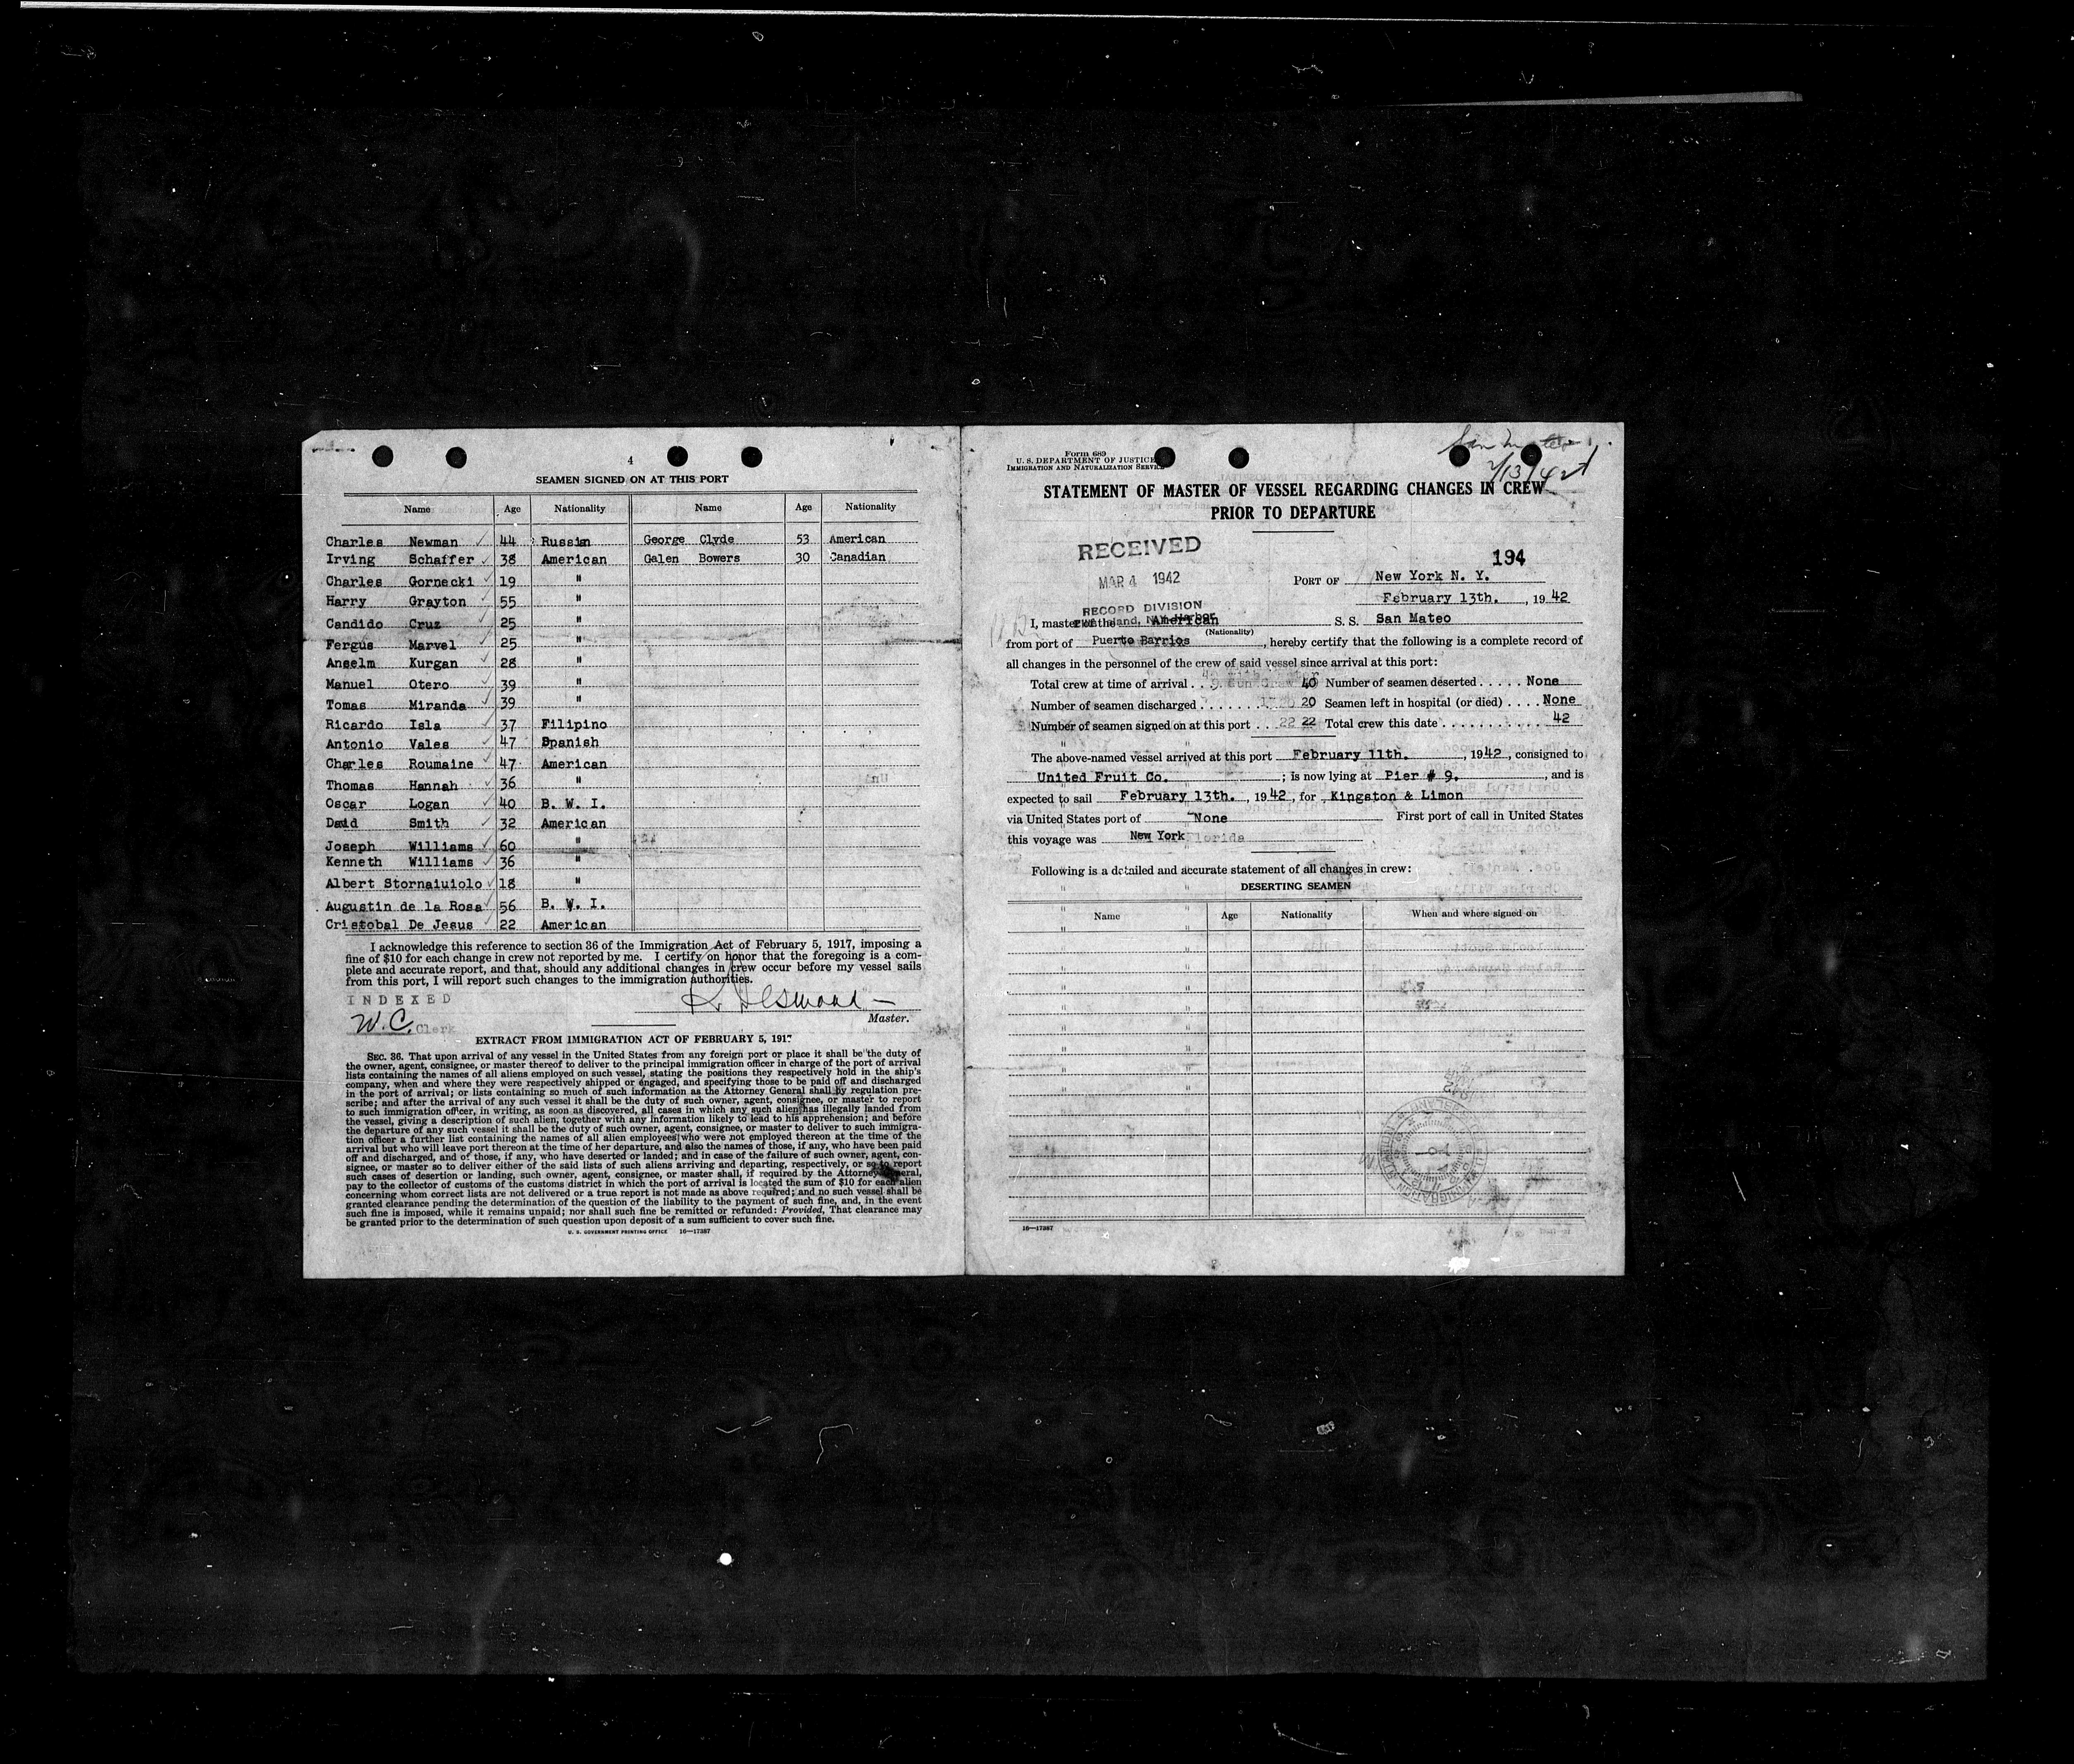 4
SEAMEN SIGNED ON AT THIS PORT
Name Age Nationality Name Age Nationality
Charles Newman 44 Russian George Clyde 53 American
Irving Schaffer 38 American Galen Bowers 30 Canadian
Charles Gornecki 19 "
Harry Grayton 55 "
Candido Cruz 25 "
Fergus Marvel 25 "
Anselm Kurgan 28 "
Manuel Otero 39 "
Tomas Miranda 39 "
Ricardo Isla 37 Filipino
Antonio Vales 47 Spanish
Charles Roumaine 47 American
Thomas Hannah 36 "
Oscar Logan 40 B. W. I.
David Smith 32 American
Joseph Williams 60 "
Kenneth Williams 36 "
Albert Stornaiuiolo 18 "
Augustin de la Rosa 56 B. W. I.
Cristobal De Jesus 22 American
I acknowledge this reference to section 36 of the Immigration Act of February 5, 1917, imposing a
fine of $10 for each change in crew not reported by me. I certify on honor that the foregoing is a com-
plete and accurate report, and that, should any additional changes in crew occur before my vessel sails
from this port, I will report such changes to the immigration authorities.
INDEXED
W.C. Clerk
Master.
EXTRACT FROM IMMIGRATION ACT OF FEBRUARY 5, 1917
SEC. 36. That upon arrival of any vessel in the United States from any foreign port or place it shall be the duty of
the owner, agent, consignee, or master thereof to deliver to the principal immigration officer in charge of the port of arrival
lists containing the names of all aliens employed on such vessel, stating the positions they respectively hold in the ship's
company, when and where they were respectively shipped or engaged, and specifying those to be paid off and discharged
in the port of arrival; or lists containing so much of such information as the Attorney General shall by regulation pre-
scribe; and after the arrival of any such vessel it shall be the duty of such owner, agent, consignee, or master to report
to such immigration officer, in writing, as soon as discovered, all cases in which any such alien has illegally landed from
the vessel, giving a description of such alien, together with any information likely to lead to his apprehension; and before
the departure of any such vessel it shall be the duty of such owner, agent, consignee, or master to deliver to such immigra-
tion officer a further list containing the names of all alien employees who were not employed thereon at the time of the
arrival but who will leave port thereon at the time of her departure, and also the names of those, if any, who have been paid
off and discharged, and of those, if any, who have deserted or landed; and in case of the failure of such owner, agent, con-
signee, or master so to deliver either of the said lists of such aliens arriving and departing, respectively, or so to report
such cases of desertion or landing, such owner, agent, consignee, or master shall, if required by the Attorney General,
pay to the collector of customs of the customs district in which the port of arrival is located the sum of $10 for each alien
concerning whom correct lists are not delivered or a true report is not made as above required; and no such vessel shall be
granted clearance pending the determination of the question of the liability to the payment of such fine, and, in the event
such fine is imposed, while it remains unpaid; nor shall such fine be remitted or refunded: Provided, That clearance may
be granted prior to the determination of such question upon deposit of a sum sufficient to cover such fine.
U. S. GOVERNMENT PRINTING OFFICE 16—17387
Form 689
U. S. DEPARTMENT OF JUSTICE
IMMIGRATION AND NATURALIZATION SERVICE
San Mateo
2/13/42
STATEMENT OF MASTER OF VESSEL REGARDING CHANGES IN CREW
PRIOR TO DEPARTURE
RECEIVED
MAR 4 1942
RECORD DIVISION
194
PORT OF New York N. Y.
February 13th. , 1942
I, master of the American S. S. San Mateo
(Nationality)
from port of Puerto Barrios , hereby certify that the following is a complete record of
all changes in the personnel of the crew of said vessel since arrival at this port:
Total crew at time of arrival . . 40 Number of seamen deserted . . . . . None
Number of seamen discharged . . . . . . . 20 Seamen left in hospital (or died) . . . . None
Number of seamen signed on at this port . . 22 22 Total crew this date . . . . . . . . . . 42
The above-named vessel arrived at this port February 11th. , 1942 , consigned to
United Fruit Co. ; is now lying at Pier # 9. , and is
expected to sail February 13th. , 1942 , for Kingston & Limon
via United States port of None First port of call in United States
this voyage was New York Florida
Following is a detailed and accurate statement of all changes in crew:
DESERTING SEAMEN
Name Age Nationality When and where signed on
16—17387